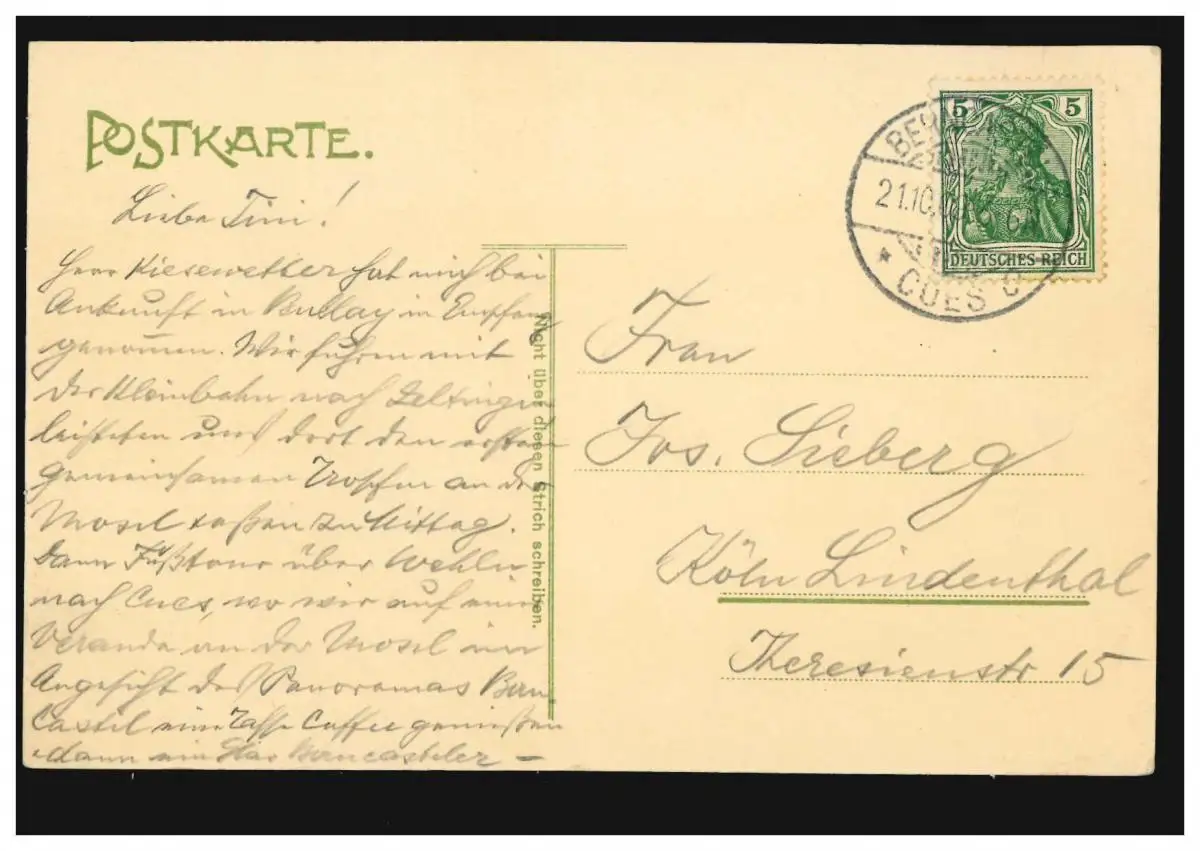 POSTKARTE.
Liebe Tini!
Herr Kiesewetter hat mich bei
Ankunft in Bullay in Empfang
genommen. Wir fuhren mit
der Kleinbahn nach Zeltingen
leisteten uns dort den ersten
gemeinsamen Tropfen an der
Mosel + aßen zu Mittag.
Dann Fußtour über Wehlen
nach Cues, wo wir auf einer
Veranda an der Mosel im
Angesicht des Panoramas Bern
Castel eine Tasse Caffee genießen
dann ein Glas Berncasteler –
Nicht über diesen Strich schreiben.
5 5
DEUTSCHES REICH
21.10.
* CUES C
Frau
Jos. Sieberg
Köln Lindenthal
Theresienstr 15